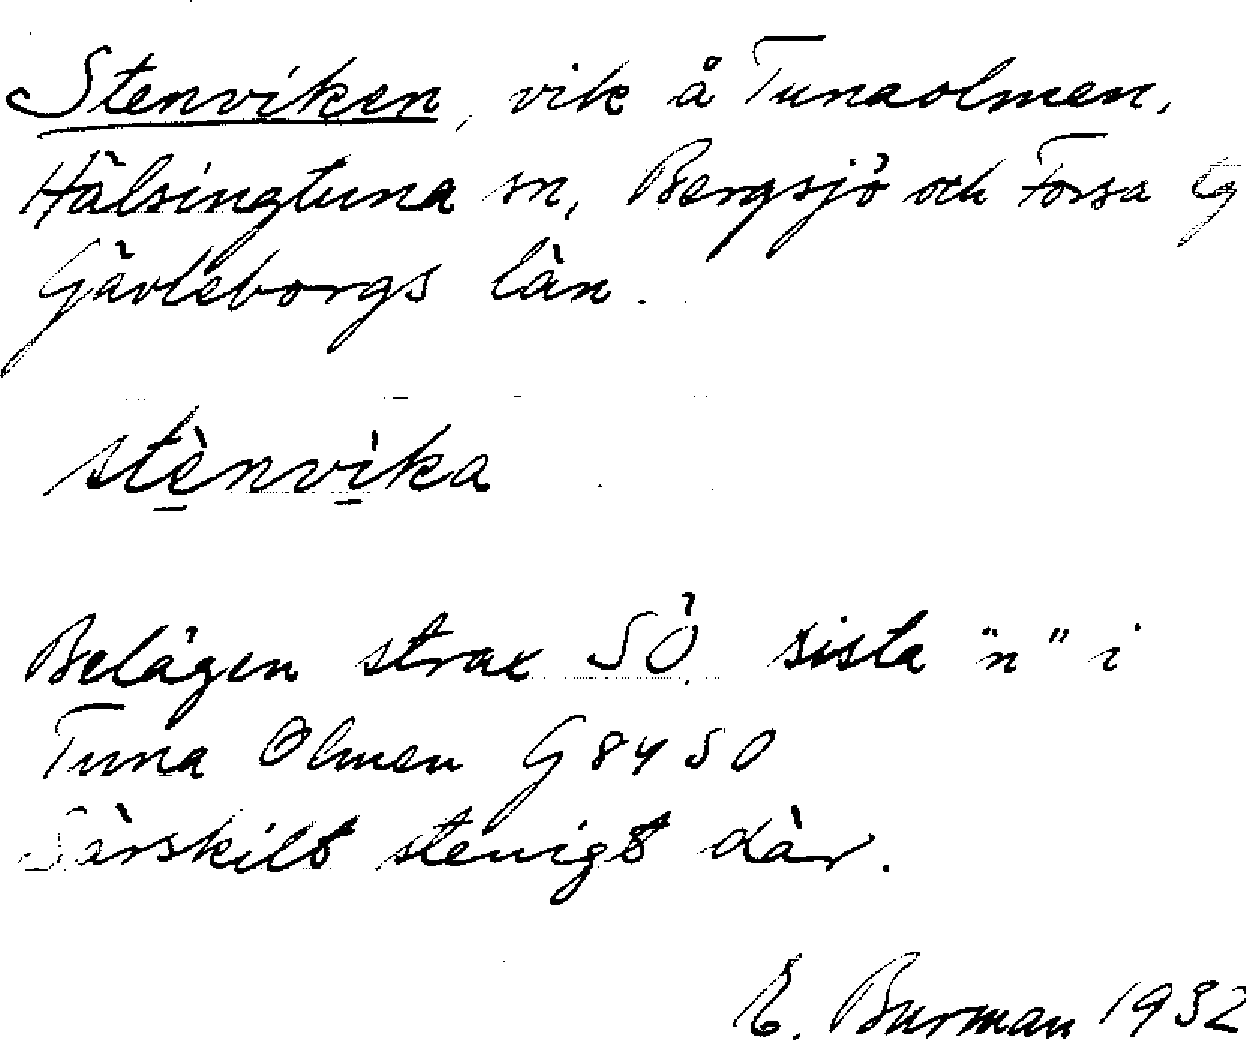 Stenviken, vik å Tunaolmen,
Hälsingtuna sn, Bergsjö och Forsa tg
Gävleborgs län.
stènvika
Belägen strax SÖ sista "n" i
Tuna Olmen G 84 50
Särskilt stenigt där.
E. Burman 1932